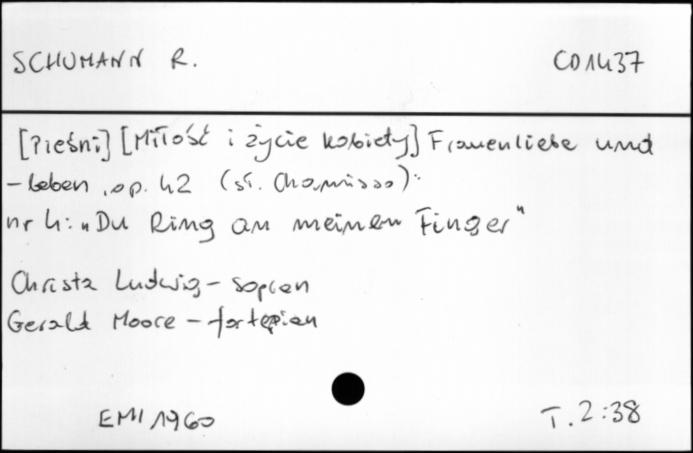 SCHUMANN R.
CD1437
[Pieśni] [Miłość i życie kobiety] Frauenliebe und
-leben, op. 42 (sł. Chamisso):
nr 4: „Du Ring an meinem Finger"
Christa Ludwig - sopran
Gerald Moore - fortepian
EMI 1960
T. 2:38